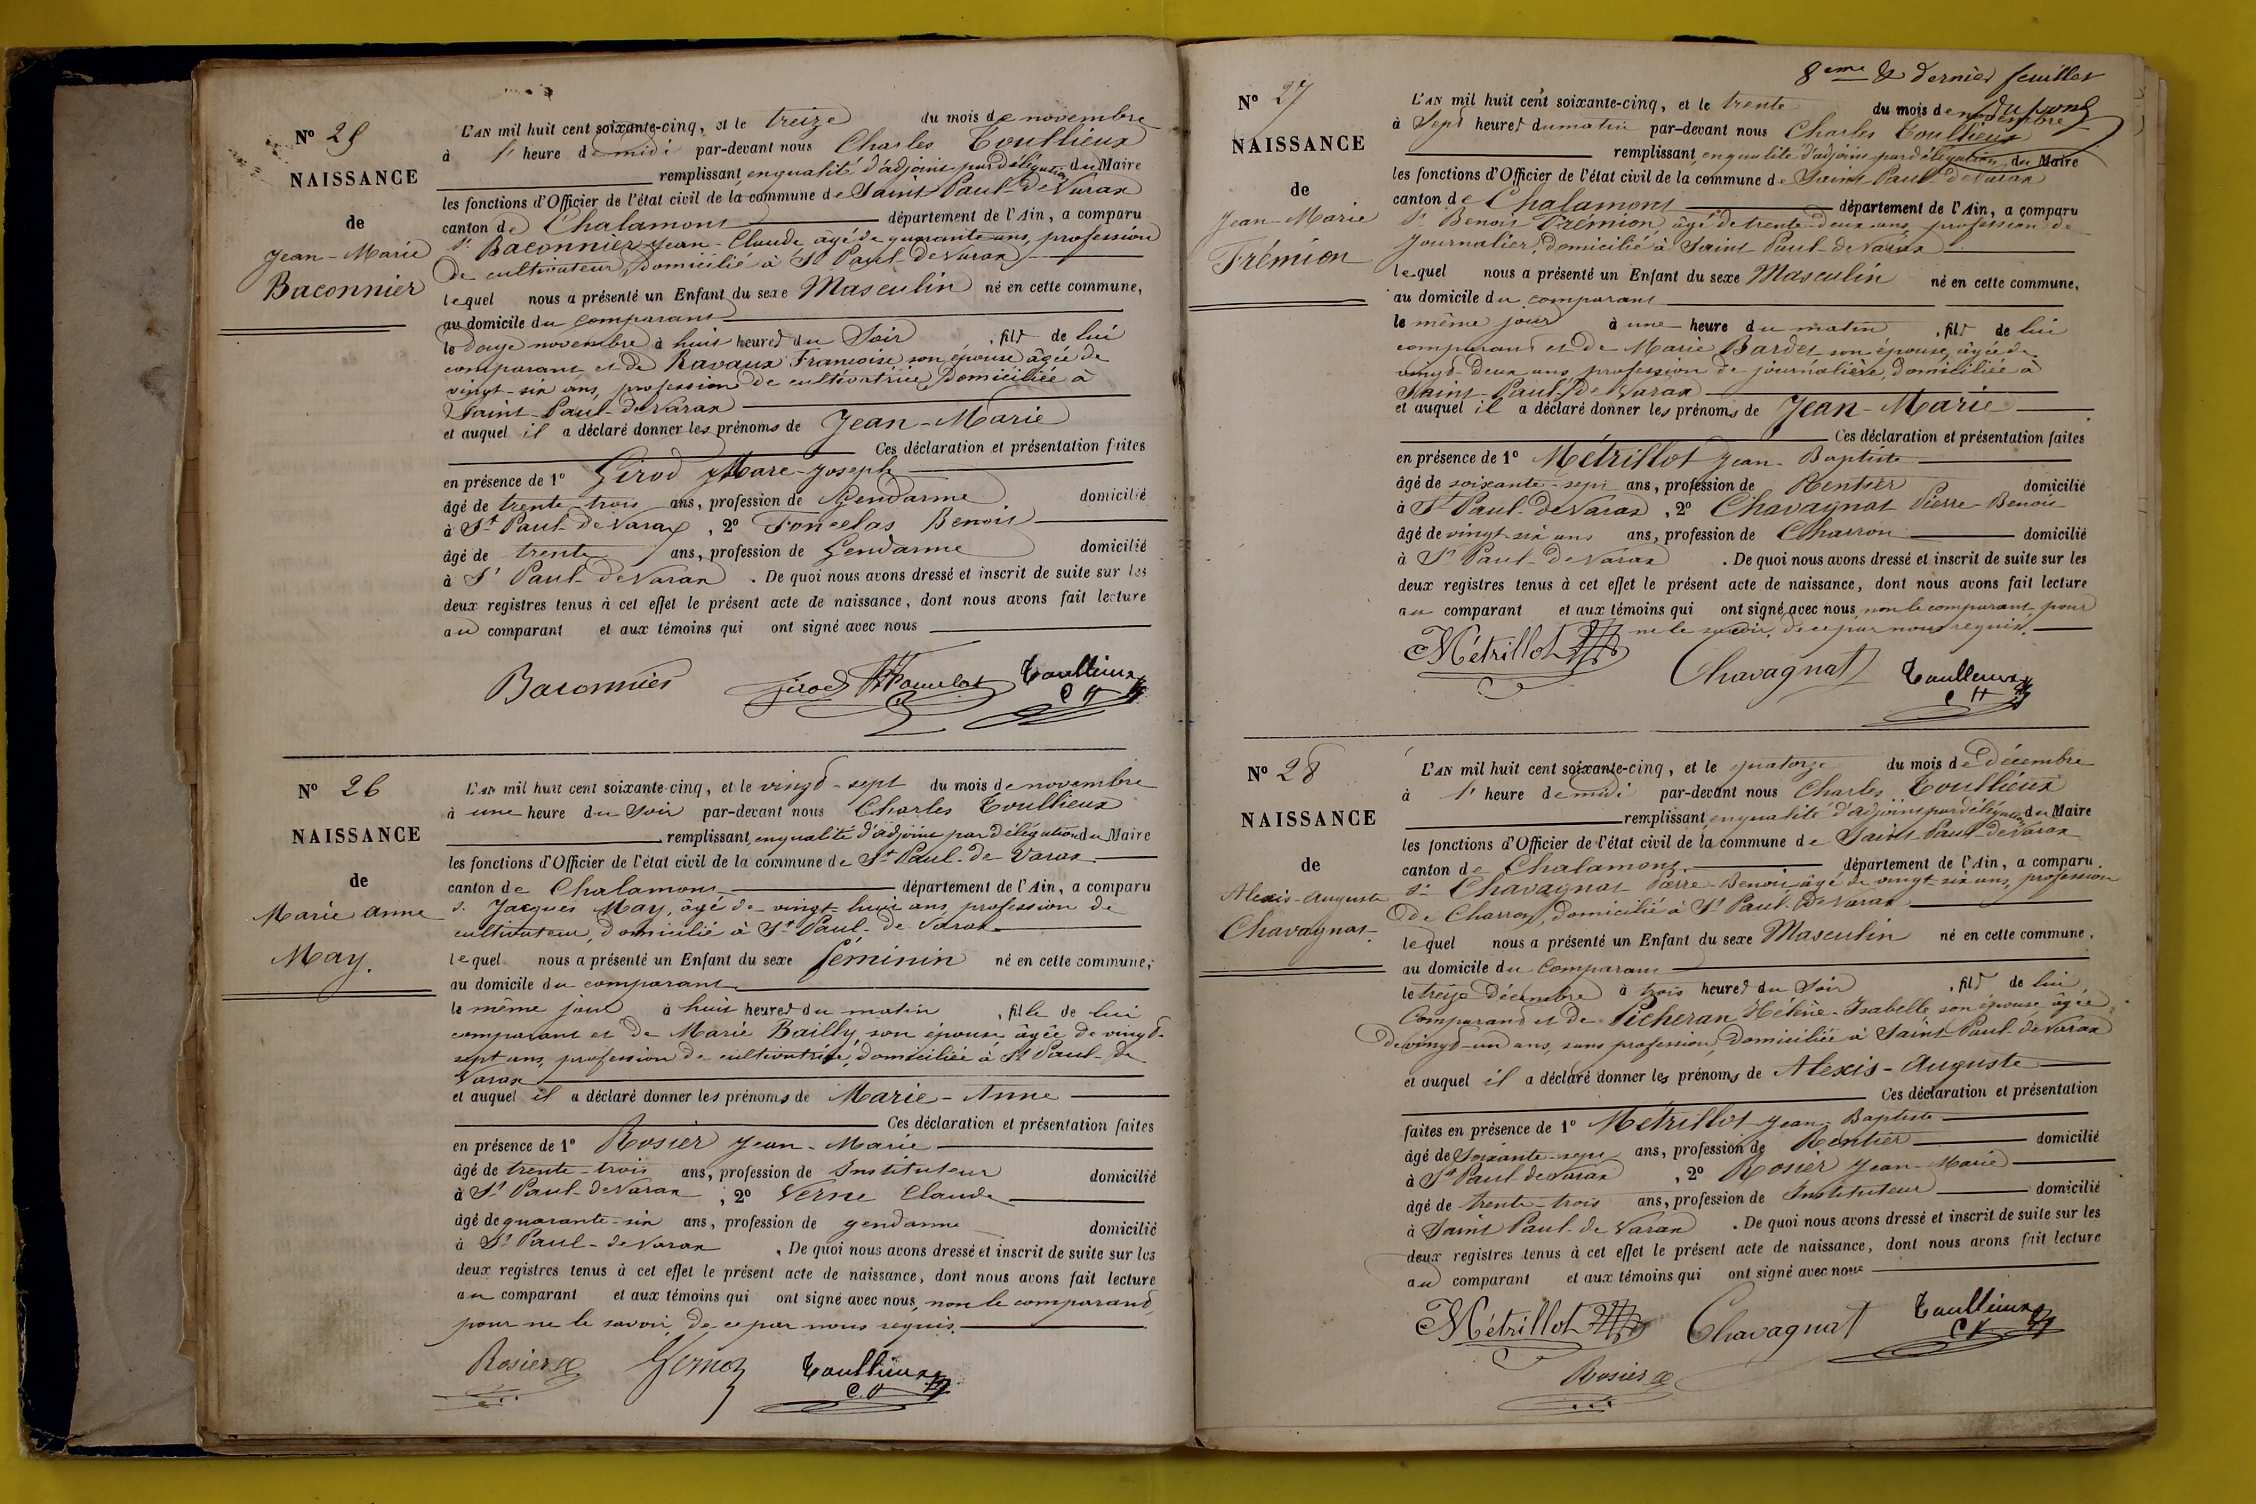 N° 25
NAISSANCE
de
Jean-Marie
Baconnier
L'AN mil huit cent soixante-cinq, et le treize du mois de novembre
à l' heure de midi par-devant nous Charles Toullieux
remplissant, en qualité d'adjoint par délégation du Maire
les fonctions d'Officier de l'état civil de la commune de Saint Paul-de Varax
canton de Chalamont département de l'Ain, a comparu
Sr Baconnier Jean-Claude, âgé de quarante ans, profession
de cultivateur, domicilié à St Paul-de Varax
lequel nous a présenté un Enfant du sexe Masculin né en cette commune,
au domicile du comparant
le doze novembre à huit heures du Soir, fils de lui
comparant et de Ravaux Francoise son épouse âgée de
vingt-six ans, profession de cultivatrice, domiciliée à
Saint-Paul-de Varax
et auquel il a déclaré donner les prénoms de Jean-Marie
Ces déclaration et présentation faites
en présence de 1° Girod Marc-Joseph
âgé de trente-trois ans, profession de Gendarme domicilié
à St Paul-de Varax, 2° Foncelas Benoit
âgé de trente ans, profession de Gendarme domicilié
à St Paul-de Varax. De quoi nous avons dressé et inscrit de suite sur les
deux registres tenus à cet effet le présent acte de naissance, dont nous avons fait lecture
au comparant et aux témoins qui ont signé avec nous
Baconnier Girod Toullieux
N° 26
NAISSANCE
de
Marie Anne
May.
L'AN mil huit cent soixante-cinq, et le vingt-sept du mois de novembre
à une heure du Soir par-devant nous Charles Toullieux
remplissant, en qualité d'adjoint par délégation du Maire
les fonctions d'Officier de l'état civil de la commune de St Paul-de Varax
canton de Chalamont département de l'Ain, a comparu
Sr Jacques May, âgé de vingt huit ans, profession de
cultivateur, domicilié à St Paul-de Varax
lequel nous a présenté un Enfant du sexe féminin né en cette commune,
au domicile du comparant
le même jour à huit heures du matin, fille de lui
comparant et de Marie Bailly, son épouse âgée de vingt-
sept ans, profession de cultivatrice, domiciliée à St Paul-de
Varax
et auquel il a déclaré donner les prénoms de Marie-Anne
Ces déclaration et présentation faites
en présence de 1° Rosier Jean-Marie
âgé de trente-trois ans, profession de Instituteur domicilié
à St Paul-de Varax, 2° Verne Claude
âgé de quarante-six ans, profession de gendarme domicilié
à St Paul-de Varax. De quoi nous avons dressé et inscrit de suite sur les
deux registres tenus à cet effet le présent acte de naissance, dont nous avons fait lecture
au comparant et aux témoins qui ont signé avec nous, non le comparant,
pour ne le savoir, de ce par nous requis.
Rosier Toullieux
8eme & dernier feuillet
N° 27
NAISSANCE
de
Jean-Marie
Frémion
L'AN mil huit cent soixante-cinq, et le trente du mois de novembre
à Sept heures du matin par-devant nous Charles Toullieux
remplissant, en qualité d'adjoint par délégation du Maire
les fonctions d'Officier de l'état civil de la commune de Saint Paul-de Varax
canton de Chalamont département de l'Ain, a comparu
Sr Benoit Frémion, âgé de trente-deux ans, profession de
journalier, domicilié à Saint Paul-de Varax
lequel nous a présenté un Enfant du sexe Masculin né en cette commune,
au domicile du comparant
le même jour à une heure du matin, fils de lui
comparant et de Marie Bardet son épouse, âgée de
vingt-deux ans, profession de journalière, domiciliée à
Saint-Paul-de Varax
et auquel il a déclaré donner les prénoms de Jean-Marie
Ces déclaration et présentation faites
en présence de 1° Métrillot Jean-Baptiste
âgé de soixante-sept ans, profession de Rentier domicilié
à St Paul-de Varax, 2° Chavagnat Pierre-Benoit
âgé de vingt-six ans ans, profession de Charron domicilié
à St Paul-de Varax. De quoi nous avons dressé et inscrit de suite sur les
deux registres tenus à cet effet le présent acte de naissance, dont nous avons fait lecture
au comparant et aux témoins qui ont signé avec nous, non le comparant, pour
ne le savoir, de ce par nous requis.
Métrillot Chavagnat Toullieux
N° 28
NAISSANCE
de
Alexis-Auguste
Chavagnat
L'AN mil huit cent soixante-cinq, et le quatorze du mois de décembre
à l' heure de midi par-devant nous Charles Toullieux
remplissant, en qualité d'adjoint par délégation du Maire
les fonctions d'Officier de l'état civil de la commune de Saint-Paul-de Varax
canton de Chalamont département de l'Ain, a comparu
Sr Chavagnat Pierre-Benoit âgé de vingt-six ans, profession
de Charron, domicilié à St Paul-de Varax
lequel nous a présenté un Enfant du sexe Masculin né en cette commune,
au domicile du comparant
le treize Décembre à trois heures du Soir, fils de lui
Comparant et de Picheran Hélène-Isabelle son épouse, âgée
de vingt-un ans, sans profession, domiciliée à Saint Paul-de Varax
et auquel il a déclaré donner les prénoms de Alexis-Auguste
Ces déclaration et présentation
faites en présence de 1° Métrillot Jean-Baptiste
âgé de soixante-sept ans, profession de Rentier domicilié
à St Paul-de Varax, 2° Rosier Jean-Marie
âgé de trente-trois ans, profession de Instituteur domicilié
à Saint Paul-de Varax. De quoi nous avons dressé et inscrit de suite sur les
deux registres tenus à cet effet le présent acte de naissance, dont nous avons fait lecture
au comparant et aux témoins qui ont signé avec nous
Métrillot Chavagnat Toullieux
Rosier